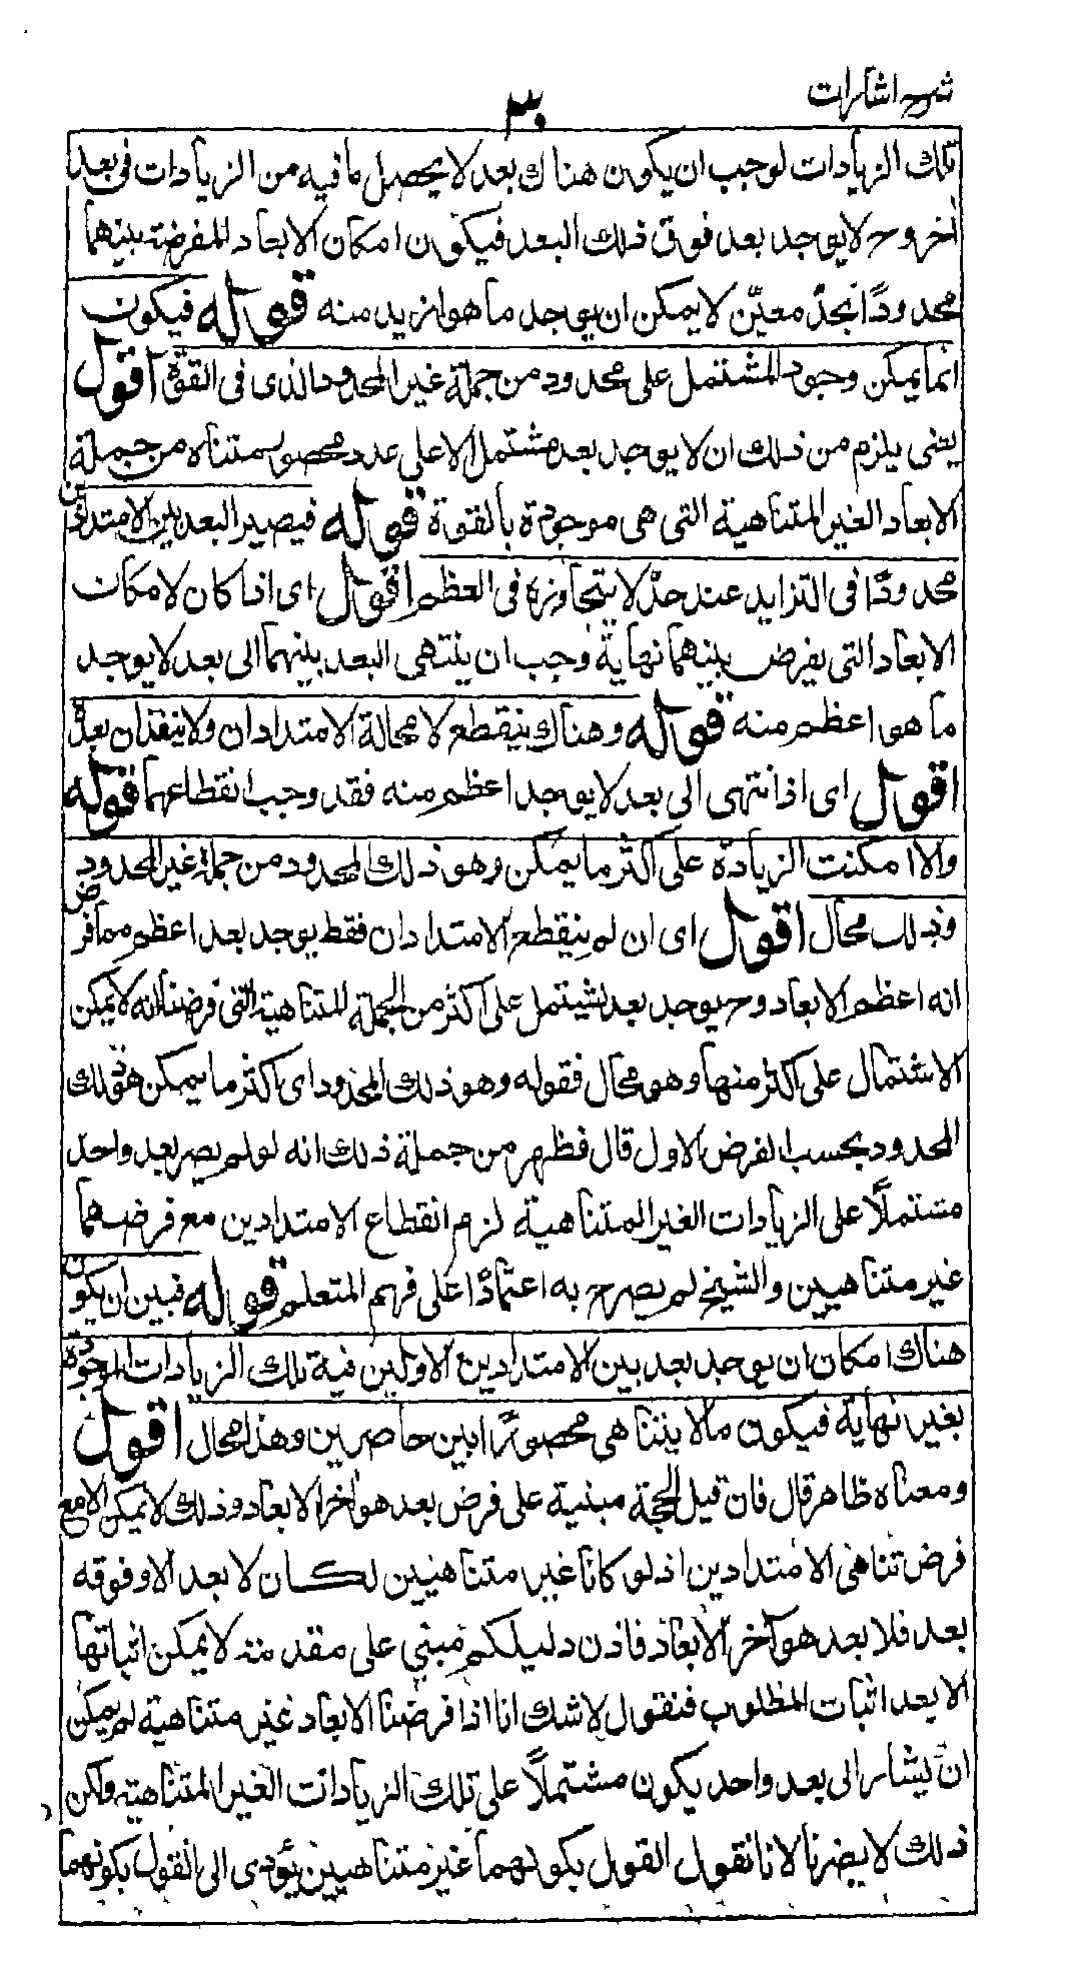 شرح اشارات
٣٠
تلك الزيادات لوجب ان يكون هناك بعد لا يحصل ما فيه من الزيادات فى بعد
اخر وح لا يوجد بعد فوق ذلك البعد فيكون امكان الابعاد المفرضة بينهما
محدودًا بحدّ معيّن لا يمكن ان يوجد ما هو ازيد منه قوله فيكون
انما يمكن وجود المشتمل على محدود من جملة غير المحدود الذى فى القوّة اقول
يعنى يلزم من ذلك ان لا يوجد بعد مشتمل الا على عدد محصور متناه من جملة
الابعاد الغير المتناهية التى هى موجودة بالقوة قوله فيصير البعد بين الامتدادين
محدودًا فى التزايد عند حدّ لا يتجاوزه فى العظم اقول اى اذا كان لامكان
الابعاد التى يفرض بينهما نهاية وجب ان ينتهى البعد بينهما الى بعد لا يوجد
ما هو اعظم منه قوله وهناك ينقطع لا محالة الامتدادان ولا ينفذان بعدهُ
اقول اى اذا انتهى الى بعد لا يوجد اعظم منه فقد وجب انقطاعهما قوله
والا امكنت الزيادة على اكثر ما يمكن وهو ذلك المحدود من جملة غير المحدود
وذلك محال اقول اى ان لم ينقطع الامتدادان فقط يوجد بعد اعظم مما فرض
انه اعظم الابعاد وح يوجد بعد يشتمل على اكثر من الجملة المتناهية التى فرضنا انه لا يمكن
الاشتمال على اكثر منها وهو محال فقوله وهو ذلك المحدود اى اكثر ما يمكن هو ذلك
المحدود بحسب الفرض الاول قال فظهر من جملة ذلك انه لو لم يصر بعد واحد
مشتملًا على الزيادات الغير المتناهية لزم انقطاع الامتدادين مع فرضهما
غير متناهيين والشيخ لم يصرح به اعتمادًا على فهم المتعلم قوله فبين ان يكون
هناك امكان ان يوجد بعد بين الامتدادين الاولين فيه تلك الزيادات الموجودة
بغير نهاية فيكون ما لا يتناهى محصورًا بين حاصرين وهذا محال اقول
ومعناه ظاهر قال فان قيل الحجة مبنية على فرض بعد هو اخر الابعاد وذلك لا يمكن الا مع
فرض تناهى الامتدادين اذ لو كانا غير متناهيين لكان لا بعد الا وفوقه
بعد فلا بعد هو آخر الابعاد فاذن دليلكم مبنى على مقدمة لا يمكن اثباتها
الا بعد اثبات المطلوب فنقول لا شك انا اذا فرضنا الابعاد غير متناهية لم يمكن
ان يشار الى بعد واحد يكون مشتملًا على تلك الزيادات الغير المتناهية ولكن
ذلك لا يضرنا لانا نقول القول بكونهما غير متناهيين يؤدى الى القول بكونهما